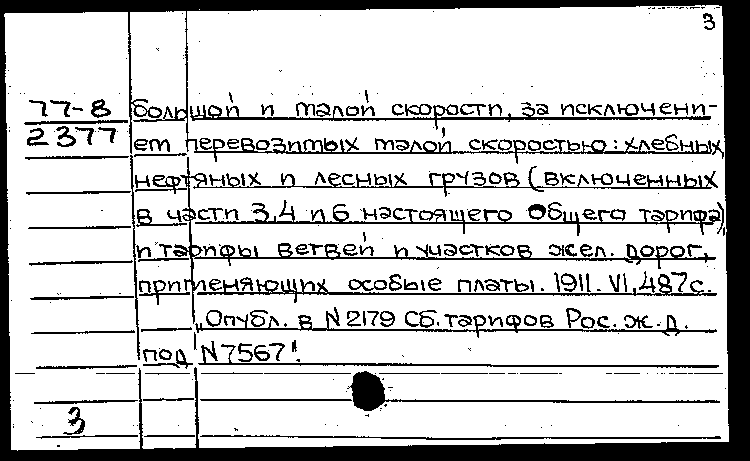 3
77-8
2377
большой и малой скорости, за исключени-
ем перевозимых малой скоростью: хлебных,
нефтяных и лесных грузов (включенных
в части 3,4 и 6 настоящего Общего тарифа)
и тарифы ветвей и участков жел. дорог,
применяющих особые платы. 1911. VI, 487с.
„Опубл. в N 2179 Сб. тарифов Рос. ж. д.
под N 7567".
3